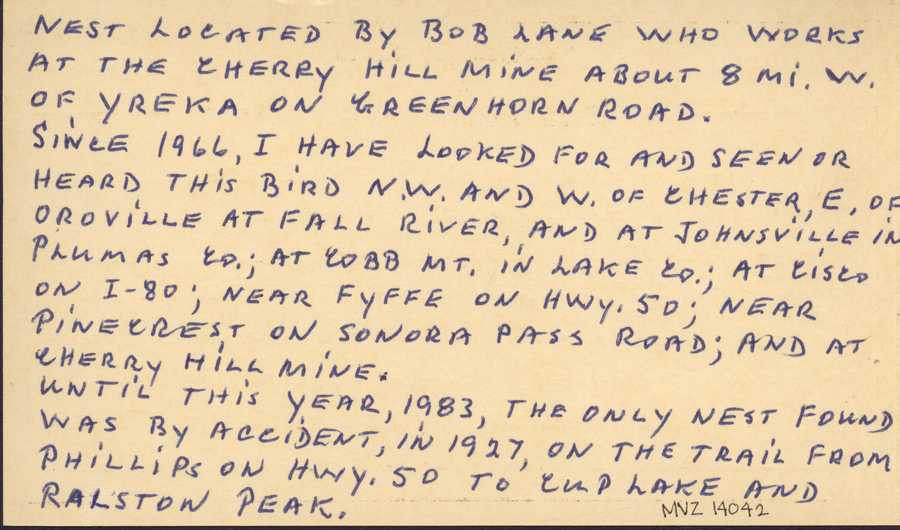 NEST LOCATED BY BOB LANE WHO WORKS
AT THE CHERRY HILL MINE ABOUT 8 MI. W.
OF YREKA ON GREENHORN ROAD.
SINCE 1966, I HAVE LOOKED FOR AND SEEN OR
HEARD THIS BIRD N.W. AND W. OF CHESTER, E. OF
OROVILLE AT FALL RIVER, AND AT JOHNSVILLE IN
PLUMAS CO.; AT COBB MT. IN LAKE CO.; AT CISCO
ON I-80; NEAR FYFFE ON HWY. 50; NEAR
PINECREST ON SONORA PASS ROAD; AND AT
CHERRY HILL MINE.
UNTIL THIS YEAR, 1983, THE ONLY NEST FOUND
WAS BY ACCIDENT, IN 1927, ON THE TRAIL FROM
PHILLIPS ON HWY. 50 TO CUP LAKE AND
RALSTON PEAK.
MVZ 14042